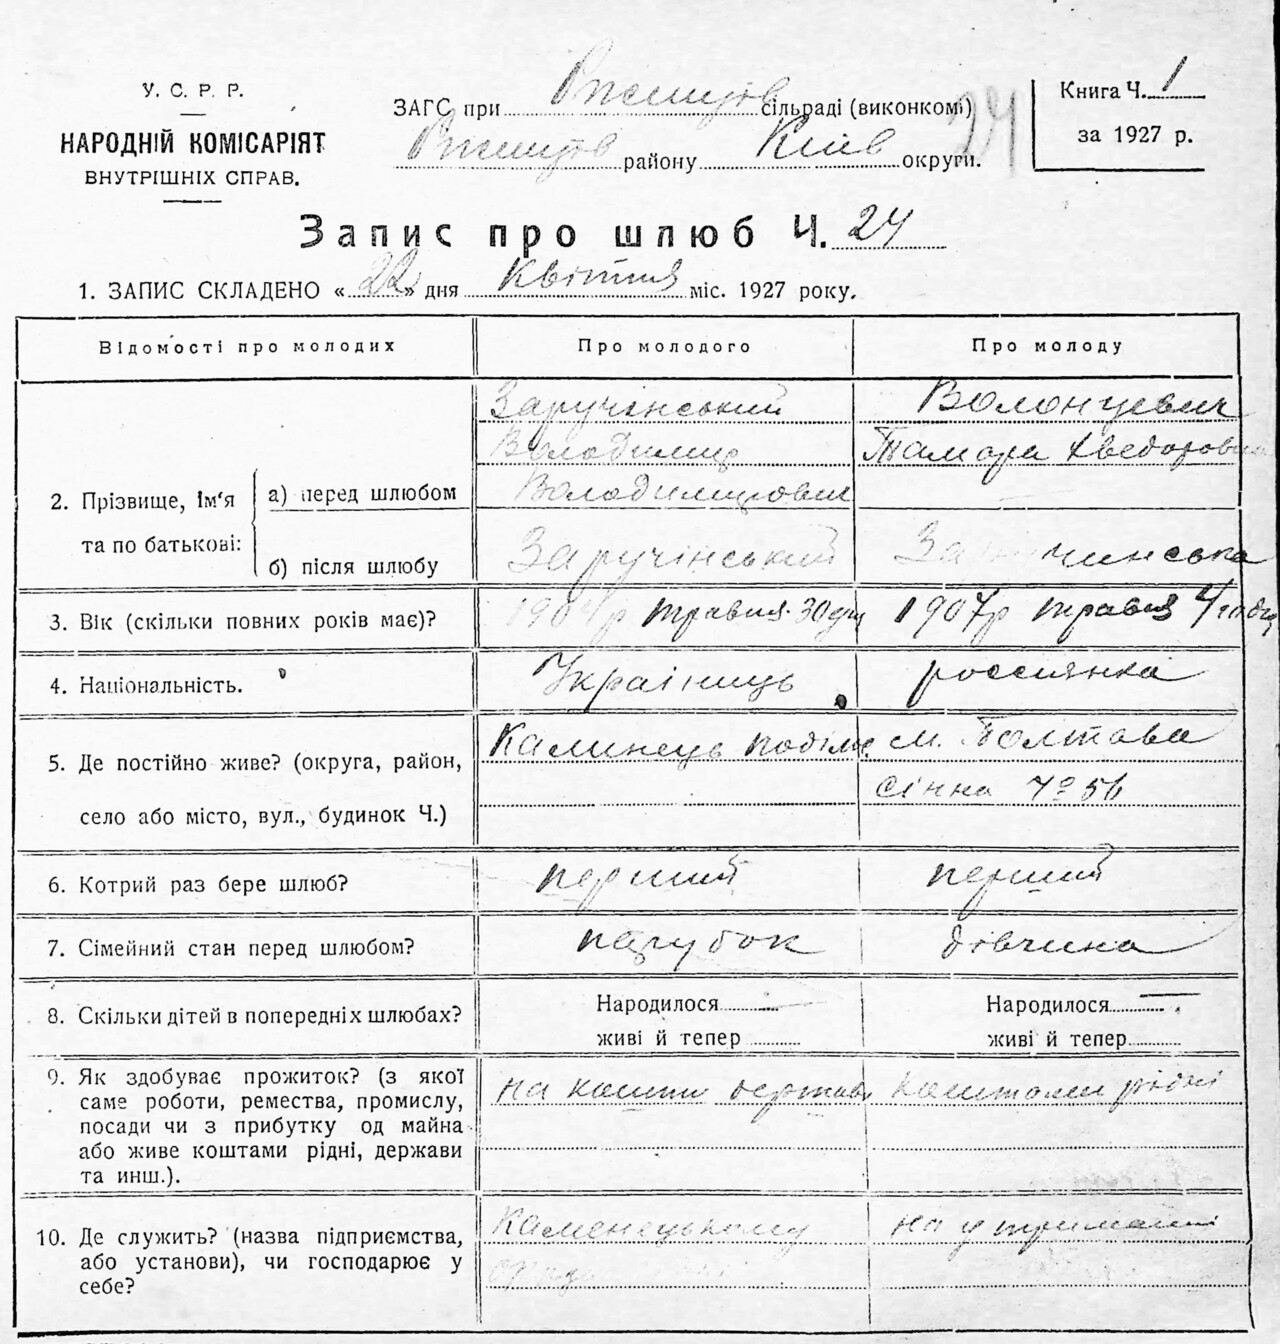 У. С. Р. Р.
НАРОДНІЙ КОМІСАРІЯТ
ВНУТРІШНІХ СПРАВ.
ЗАГС при Ржищів сільраді (виконкомі)
Ржищів району Київ округи.
24
Книга Ч. 1
за 1927 р.
Запис про шлюб Ч. 24
1. ЗАПИС СКЛАДЕНО « 22 » дня Квітня міс. 1927 року.
Відомості про молодих
Про молодого
Про молоду
2. Прізвище, Ім'я та по батькові:
а) перед шлюбом
Заручінський
Володимир
Володимирович
Волонцевич
Тамара Хведоровна
б) після шлюбу
Заручінський
Заручинська
3. Вік (скільки повних років має)?
1904р травня 30дня
1907р травня 4
4. Національність.
Українець
россиянка
5. Де постійно живе? (округа, район,
село або місто, вул., будинок Ч.)
Каминець поділь
м. Полтава
Сінна № 56
6. Котрий раз бере шлюб?
перший
перший
7. Сімейний стан перед шлюбом?
парубок
дівчина
8. Скільки дітей в попередніх шлюбах?
Народилося
живі й тепер
Народилося
живі й тепер
9. Як здобуває прожиток? (з якої
саме роботи, ремества, промислу,
посади чи з прибутку од майна
або живе коштами рідні, держави
та инш.).
на кошти держави
коштами рідні
10. Де служить? (назва підприємства,
або установи), чи господарює у
себе?
Каменецькому
на утриманні